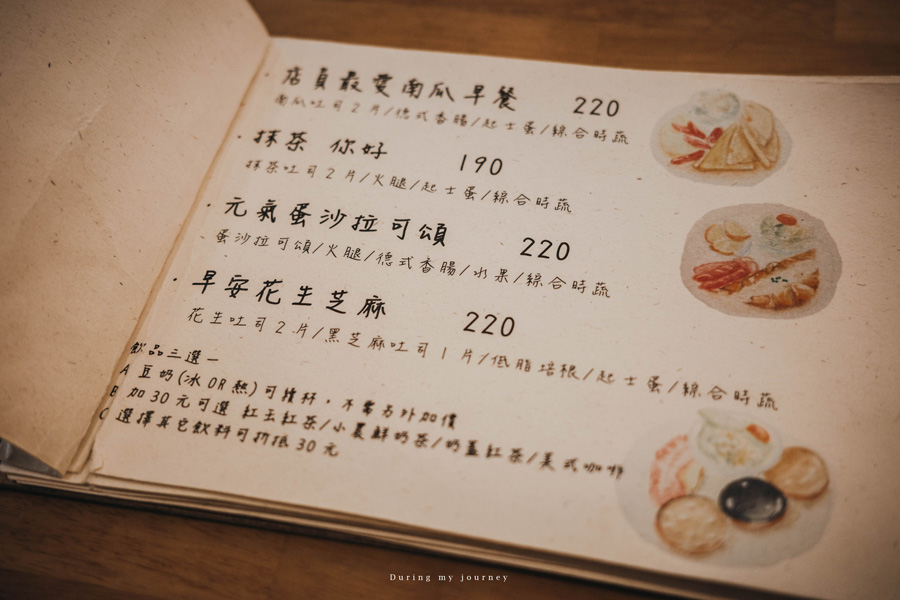 · 店員最愛南瓜早餐 220
南瓜吐司2片/德式香腸/起士蛋/綜合時蔬
· 抹茶 你好 190
抹茶吐司2片/火腿/起士蛋/綜合時蔬
· 元氣蛋沙拉可頌 220
蛋沙拉可頌/火腿/德式香腸/水果/綜合時蔬
· 早安花生芝麻 220
花生吐司2片/黑芝麻吐司1片/低脂培根/起士蛋/綜合時蔬
飲品三選一
A 豆奶(冰OR熱)可續杯,不需另外加價
B 加30元可選 紅玉紅茶/小農鮮奶茶/奶蓋紅茶/美式咖啡
C 選擇其它飲料可折抵30元
During my journey